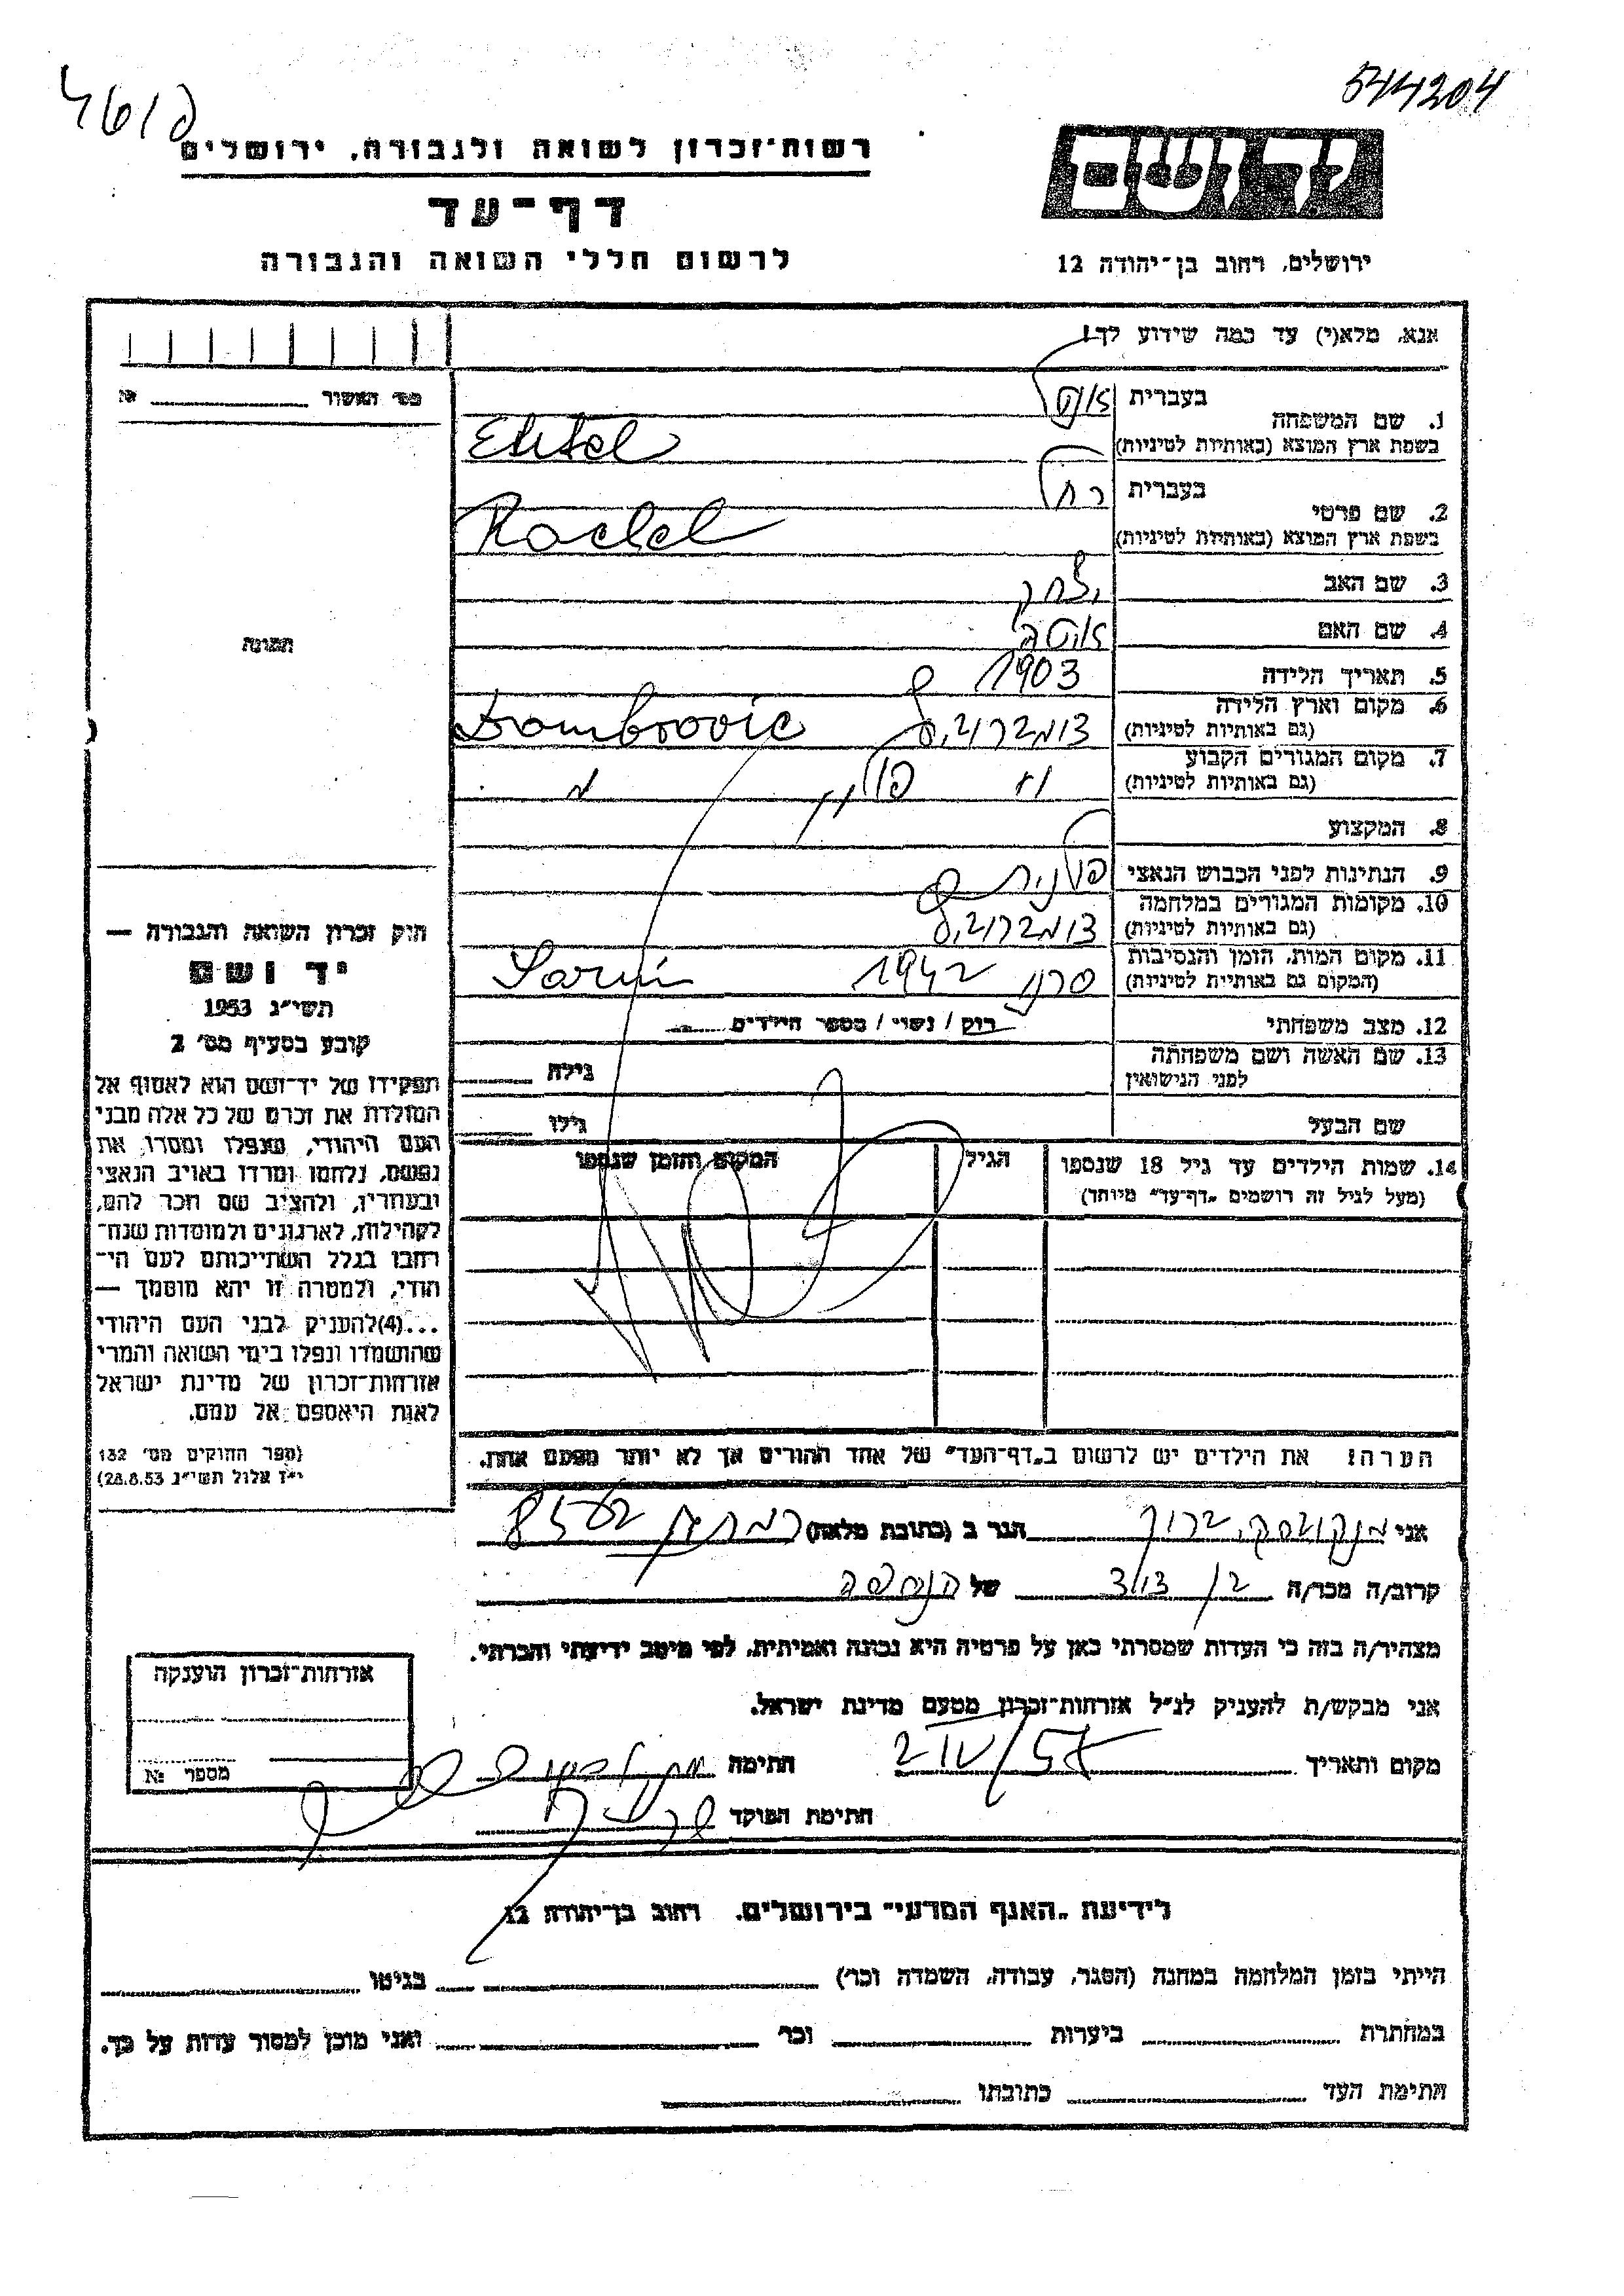 544204
רשות־זכרון לשואה ולגבורה, ירושלים
דף־עד
לרשום חללי השואה והגבורה
ירושלים, רחוב בן־יהודה 12
אנא, מלא(י) עד כמה שידוע לך!
מס׳ האשור №
1. שם המשפחה
בעברית
בשפת ארץ המוצא (באותיות לטיניות)
2. שם פרטי
בעברית רחל
בשפת ארץ המוצא (באותיות לטיניות)
3. שם האב יצחק
4. שם האם
5. תאריך הלידה 1903
6. מקום וארץ הלידה
(גם באותיות לטיניות) דומברוביצה Dombrovic
7. מקום המגורים הקבוע
(גם באותיות לטיניות) פולין
8. המקצוע
9. הנתינות לפני הכבוש הנאצי פולנית
10. מקומות המגורים במלחמה
(גם באותיות לטיניות) דומברוביצה
11. מקום המות, הזמן והנסיבות
(המקום גם באותיות לטיניות) סרני 1942 Sarni
12. מצב משפחתי רוק / נשוי / מספר הילדים
13. שם האשה ושם משפחתה
לפני הנישואין גילה
שם הבעל גילו
14. שמות הילדים עד גיל 18 שנספו
(מעל לגיל זה רושמים „דף־עד״ מיוחד)
הגיל
המקום והזמן שנספו
הערה! את הילדים יש לרשום ב„דף־העד״ של אחד ההורים אך לא יותר מפעם אחת.
תמונה
חוק זכרון השואה והגבורה —
יד ושם
תשי״ג 1953
קובע בסעיף מס׳ 2
תפקידו של יד־ושם הוא לאסוף אל
המולדת את זכרם של כל אלה מבני
העם היהודי, שנפלו ומסרו את
נפשם, נלחמו ומרדו באויב הנאצי
ובעוזריו, ולהציב שם וזכר להם,
לקהילות, לארגונים ולמוסדות שנח־
רחבו בגלל השתייכותם לעם הי־
הודי, ולמטרה זו יהא מוסמך —
...(4) להעניק לבני העם היהודי
שהושמדו ונפלו בימי השואה והמרי
אזרחות־זכרון של מדינת ישראל
לאות היאספם אל עמם.
(ספר החוקים מס׳ 132
י״ז אלול תשי״ג 28.8.53)
אני ברוך הגר ב (כתובת מלאה)
קרוב/ה מכר/ה בן דוד של הנספה
מצהיר/ה בזה כי העדות שמסרתי כאן על פרטיה היא נכונה ואמיתית, לפי מיטב ידיעתי והכרתי.
אני מבקש/ת להעניק לנ״ל אזרחות־זכרון מטעם מדינת ישראל.
מקום ותאריך 2/IV/57 חתימה
חתימת הפוקד
אזרחות־זכרון הוענקה
מספר №
לידיעת „האגף המדעי״ בירושלים, רחוב בן־יהודה 12
הייתי בזמן המלחמה במחנה (הסגר, עבודה, השמדה וכו׳) בגיטו
במחתרת ביערות וכו׳ ואני מוכן למסור עדות על כך.
חתימת העד כתובתו